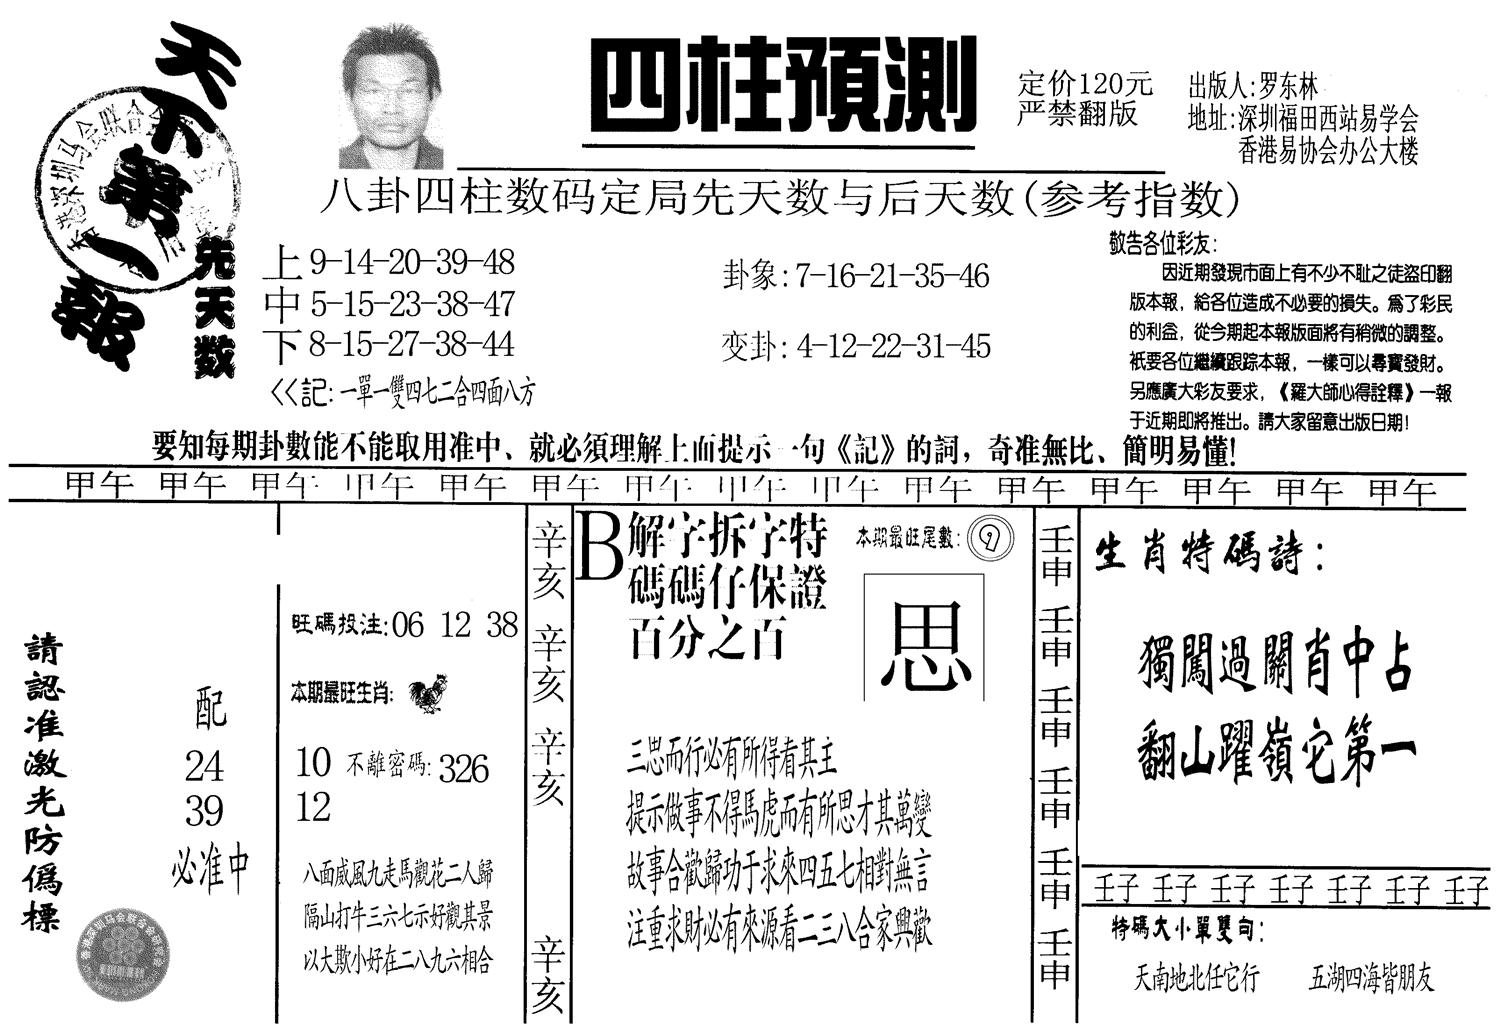 天下第一報
四柱預測
定价120元
严禁翻版
出版人:罗东林
地址:深圳福田西站易学会
香港易协会办公大楼
八卦四柱数码定局先天数与后天数(参考指数)
先天数
上 9-14-20-39-48
中 5-15-23-38-47
下 8-15-27-38-44
卦象:7-16-21-35-46
变卦:4-12-22-31-45
<<記:一單一雙四七二合四面八方
敬告各位彩友:
因近期發現市面上有不少不耻之徒盜印翻
版本報，給各位造成不必要的損失。爲了彩民
的利益，從今期起本報版面將有稍微的調整。
衹要各位繼續跟踪本報，一樣可以尋寶發財。
另應廣大彩友要求，《羅大師心得詮釋》一報
于近期即將推出。請大家留意出版日期!
要知每期卦數能不能取用准中、就必須理解上面提示一句《記》的詞，奇准無比、簡明易懂!
甲午 甲午 甲午 甲午 甲午 甲午 甲午 甲午 甲午 甲午 甲午 甲午 甲午 甲午 甲午
請認准激光防僞標
配
24
39
必准中
旺碼投注:06 12 38
本期最旺生肖:
10 不離密碼:326
12
八面威風九走馬觀花二人歸
隔山打牛三六七示好觀其景
以大欺小好在二八九六相合
辛亥 辛亥 辛亥 辛亥
B
解字拆字特
碼碼仔保證
百分之百
本期最旺尾數:9
思
三思而行必有所得者其主
提示做事不得馬虎而有所思才其萬變
故事合歡歸功于求來四五七相對無言
注重求財必有來源看二三八合家興歡
壬申 壬申 壬申 壬申 壬申 壬申
生肖特碼詩:
獨闖過關肖中占
翻山躍嶺它第一
壬子 壬子 壬子 壬子 壬子 壬子 壬子
特碼大小單雙句:
天南地北任它行 五湖四海皆朋友